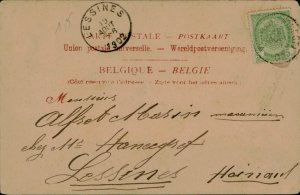 LESSINES
1902
CARTE POSTALE - POSTKAART
Union postale universelle. - Wereldpostvereeniging.
BELGIQUE - BELGIE
(Côté réservé à l'adresse. - Zijde voor het adres alleen.)
Monsieur
Alfred Masin
chez Mr
Lessines
Hainaut